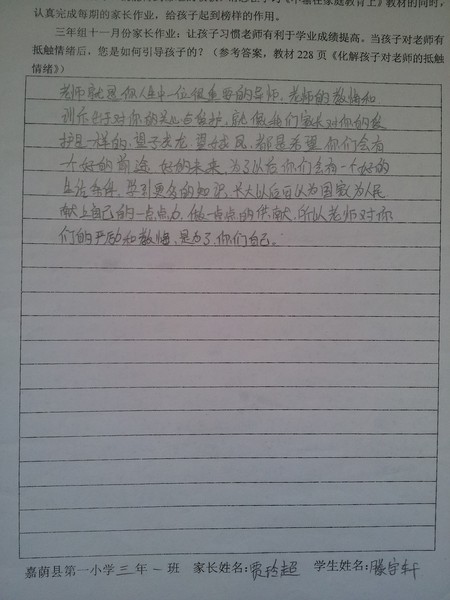 认真完成每期的家长作业，给孩子起到榜样的作用。
三年组十一月份家长作业：让孩子习惯老师有利于学业成绩提高。当孩子对老师有
抵触情绪后，您是如何引导孩子的？（参考答案，教材 228 页《化解孩子对老师的抵触
情绪》）
老师就是你人生中一位很重要的导师，老师的教悔和
训斥也于对你的关心与爱护，就像我们家长对你的爱
护是一样的，望子成龙，望女成凤，都是希望你们会有
一个好的前途，好的未来，为了以后你们会有一个好的
生活条件，学到更多的知识，长大以后可以为国家为人民
献上自己的一点点力，做一点点的供献，所以老师对你
们的严励和教悔，是为了你们自己。
嘉荫县第一小学三年一班 家长姓名：贾玲超 学生姓名：滕宇轩